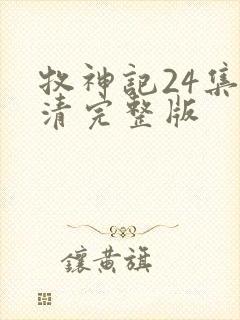 牧神記24集
清完整版
鑲黄旗